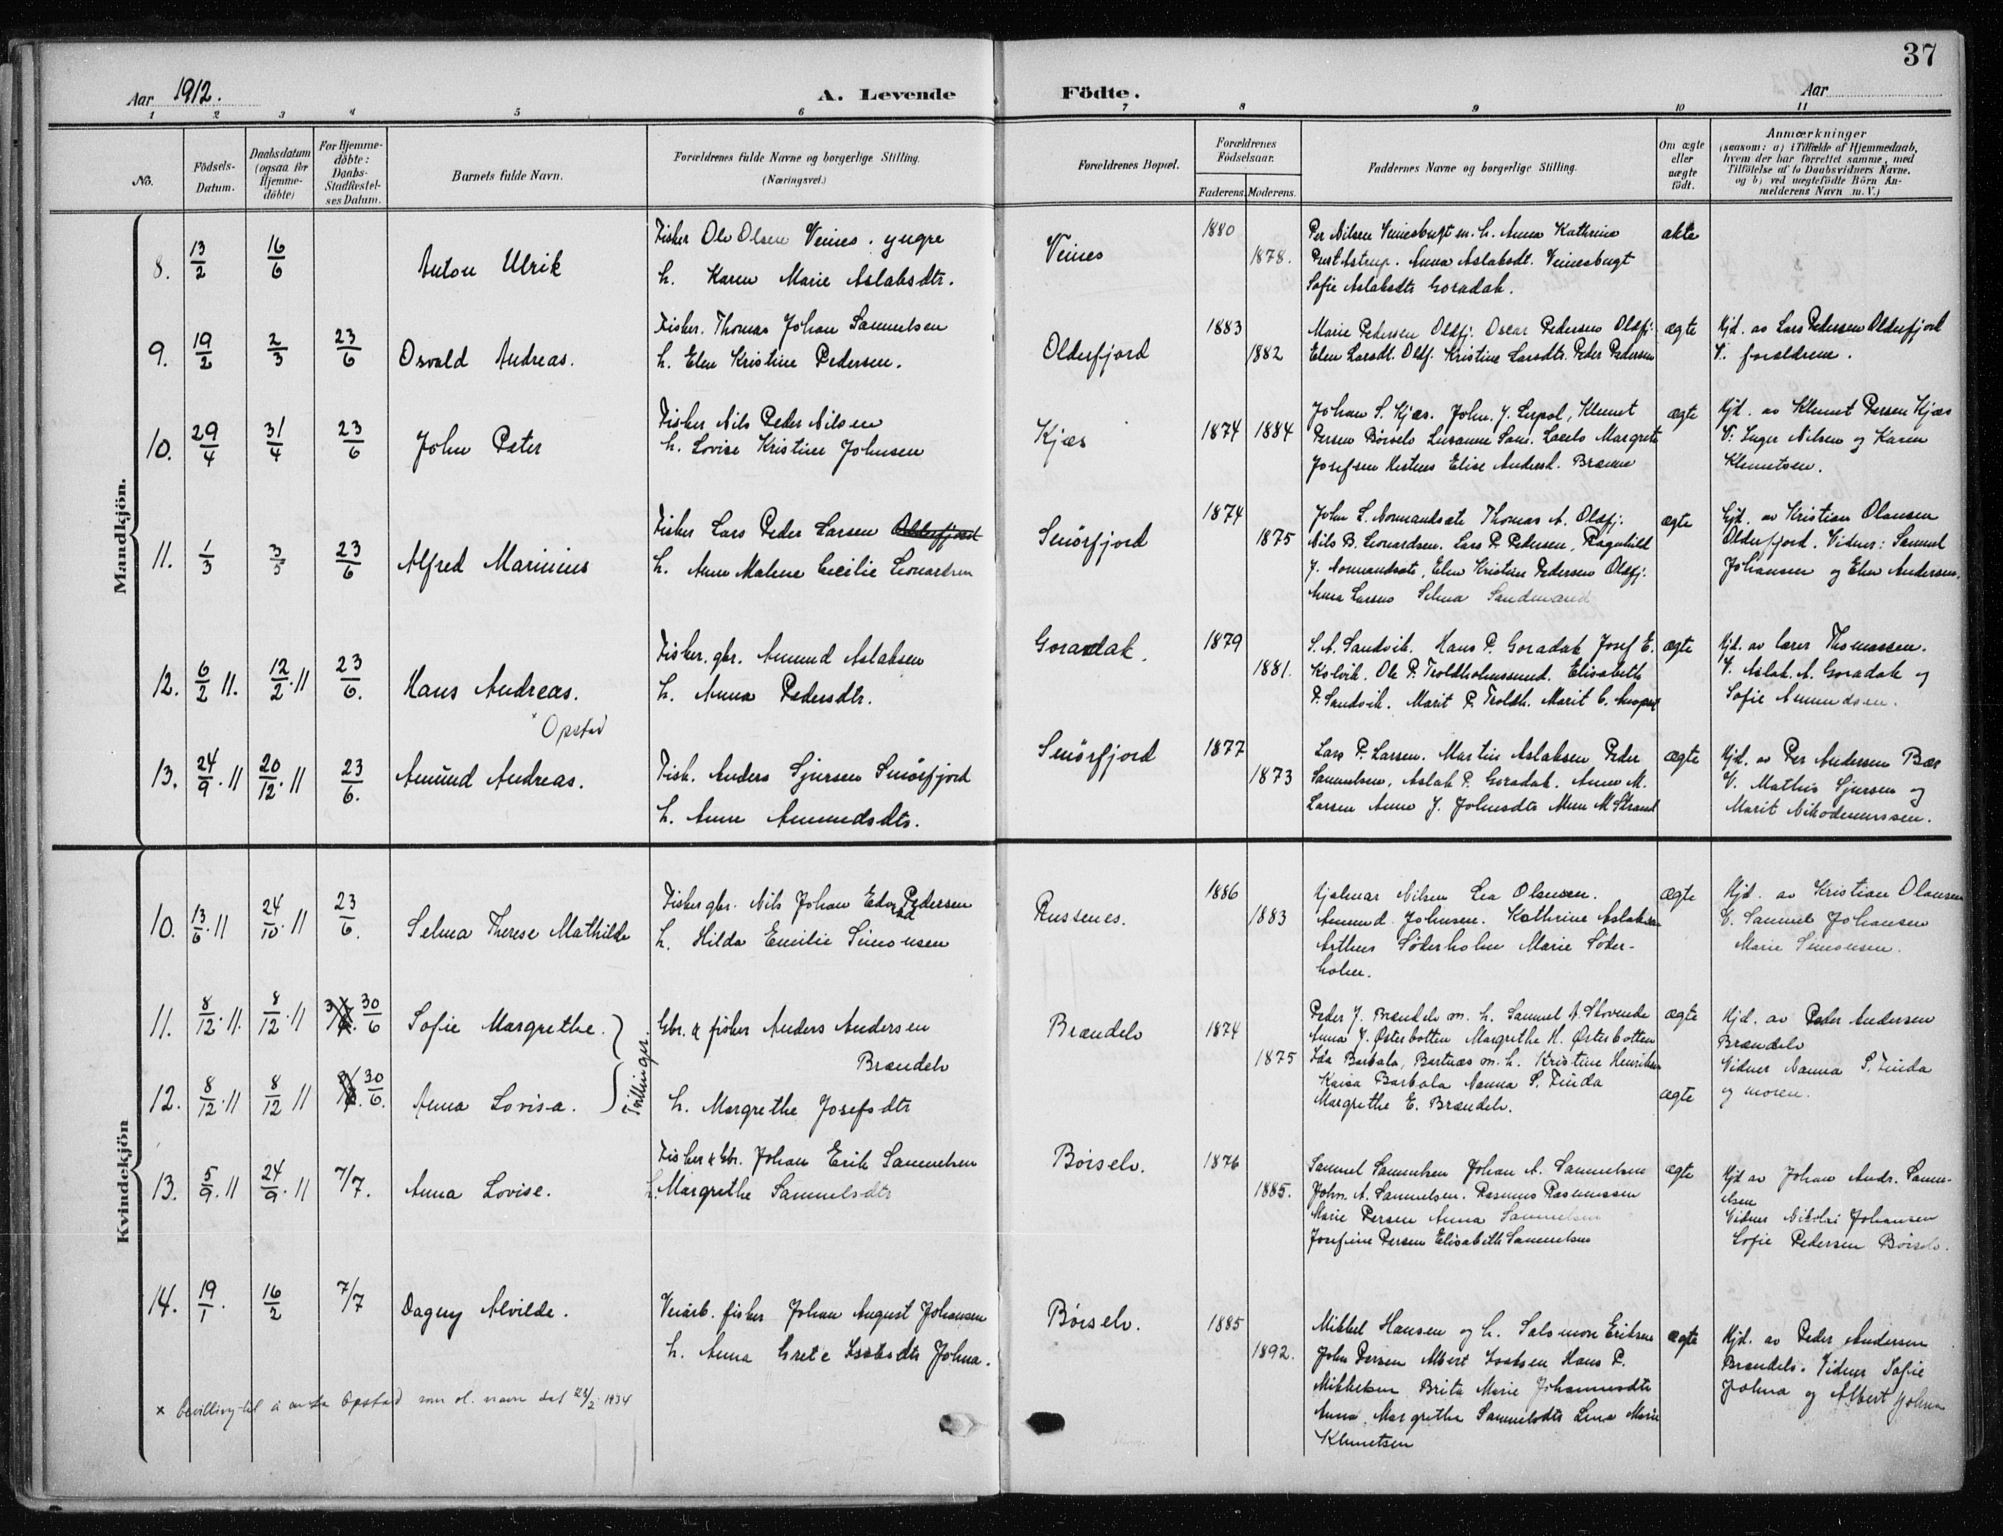 37
Aar 1912. A. Levende Födte. Aar
1 2 3 4 5 6 7 8 9 10 11
No.
Födsels-Datum.
Daabsdatum (ogsaa for Hjemmedöbte)
For Hjemmedöbte: Daabs-Stadfæstelses Datum.
Barnets fulde Navn.
Forældrenes fulde Navne og borgerlige Stilling. (Næringsvei.)
Forældrenes Bopæl.
Forældrenes Födselsaar.
Faderens. Moderens.
Faddernes Navne og borgerlige Stilling.
Om ægte eller uægte födt.
Anmærkninger
(saasom: a) i Tilfælde af Hjemmedaab, hvem der har forrettet samme, med Tilföielse af to Daabsvidners Navne. og b) ved uægtefödte Börn Anmelderens Navn m. V.)
Mandkjön.
8. 13/2 16/6 Anton Ulrik
Fisker Ole Olsen Veines. yngre
h. Karen Marie Aslaksdtr.
Veines 1880 1878.
Per Nilsen Veinesbugt m. h. Anna Kathrine
Anna Aslaksdt. Veinesbugt
Sofie Aslaksdtr Goradak.
ækte
9. 19/2 2/3 23/6 Osvald Andreas.
Fisker. Thomas Johan Samuelsen
h. Elen Kristine Pedersen.
Olderfjord 1883 1882
Marie Pedersen Oldfj. Oscar Pedersen Oldfj.
Elen Larsdt. Oldf. Kristine Larsdtr. Peder Pedersen
ægte
Hjd. av Lars Pedersen Olderfjord
V. forældrene.
10. 29/4 31/4 23/6 John Peter
Fisker Nils Peder Nilsen
h. Lovise Kristine Johnsen
Kjæs 1874 1884
Johan S. Kjæs. John. J. Klemet
Persen Børselv Susanne Sam. Margrete
Josefsen Elise Andersd.
ægte
Hjd. av Klemet Persen Kjæs
V: Inger Nilsen og Karen
Klemetsen.
11. 1/3 3/3 23/6 Alfred Marinius
Fisker Lars Peder Larsen Olderfjord
h. Anne Malene Cecilie Leonardsen
Smørfjord 1874 1875
John L. Normandsæte Thomas A. Oldfj.
Nils B. Leonardsen. Lars P. Pedersen, Ragnhild
J. Normandsæte, Elen Kristine Pedersen Oldfj.
Anna Larsen Selma Sandmand
ægte
Hjd. av Kristian Olausen
Olderfjord. Vidner: Samuel
Johansen og Elen Andersen.
12. 6/2 11. 12/2 . 11 23/6. Hans Andreas.
x Opstad
Fisker. gbr. Amund Aslaksen
h. Anna Pedersdtr.
Goradak. 1879 1881.
S. A. Sandvik. Hans P. Goradak Josef E.
Kolvik. Ole P. Troldholmsund. Elisabeth
P. Sandvik. Marit P. Troldh. Marit C.
ægte
Hjd. av lærer Thomassen.
V. Aslak. A. Goradak og
Sofie Amundsen.
13. 24/9 . 11 20/12 . 11 23/6. Amund Andreas.
Fisk. Anders Sjursen Smørfjord
h. Anne Amundsdtr.
Smørfjord 1877 1873
Lars P. Larsen. Martin Aslaksen Peder
Samuelsen, Aslak P. Goradak. Anne M.
Larsen Anne J. Johnsdtr Anne M. Strand
ægte
Hjd. av Per Andersen Bær
V. Mathis Sjursen og
Marit Nikodemussen.
Kvindekjön
10. 13/6 . 11 24/10 . 11 23/6. Selma Therese Mathilde
Fisker gbr. Nils Johan Edvard Pedersen
h. Hilda Emilie Simonsen
Russenes. 1886 1883
Hjalmar Nilsen Lea Olausen.
Amund Johnsen. Kathrine Aslaksen
Arthur Søderholm Marie Søder-
holm.
ægte
Hjd. av Kristian Olausen
V. Samuel Johansen
Marie Simonsen.
11. 8/12 . 11. 8/12 . 11 30/6 Sofie Margrethe.
Tvillinger.
Gbr. & fisker Anders Andersen
Brændelv
Brændelv 1874 1875
Peder J. Brændelv m. h. Samuel A. Stovende
Anna J. Østerbotten Margrethe H. Østerbotten
Ida Barbala, Bartnæs m. h. Kristine Henriksen
Kaisa Barbala Nanna S. Finda
Margrethe E. Brændelv.
ægte
Hjd. av Peder Andersen
Brændelv
Vidner Nanna S. Finda
og moren.
12. 8/12 . 11 8/12 11 30/6. Anna Lovisa.
h. Margrethe Josefsdtr
ægte
13. 5/9 . 11 24/9 . 11 7/7. Anna Lovise.
Fisker & Gbr. Johan Erik Samuelsen
h. Margrethe Samuelsdtr
Børselv. 1876 1885.
Samuel Samuelsen Johan A. Samuelsen
John. A. Samuelsen. Rasmus Rasmussen
Marie Persen Anna Samuelsen
Josefine Persen Elisabeth Samuelsen
ægte
Hjd av Johan Andr. Samu-
elsen
Vidner Nikolai Johansen
Sofie Pedersen Børselv.
14. 19/1. 16/2 7/7 Dagny Alvilde.
Veiarb. fisker Johan August Johansen
h. Anna Grete Isaksdtr Johna.
Børselv. 1885 1892.
Mikkel Hansen og h. Salomon Eriksen
John Persen Albert Isaksen Hans P.
Mikkelsen Brita Marie Johannesdtr
Anna, Margrethe Samuelsdtr Lina Marie
Klemetsen
ægte
Hjd. av Peder Andersen
Brændelv. Vidner Sofie
Johna og Albert Johna
x Bevilling til å anta Opstad som sl. navn dat 23/2 1934